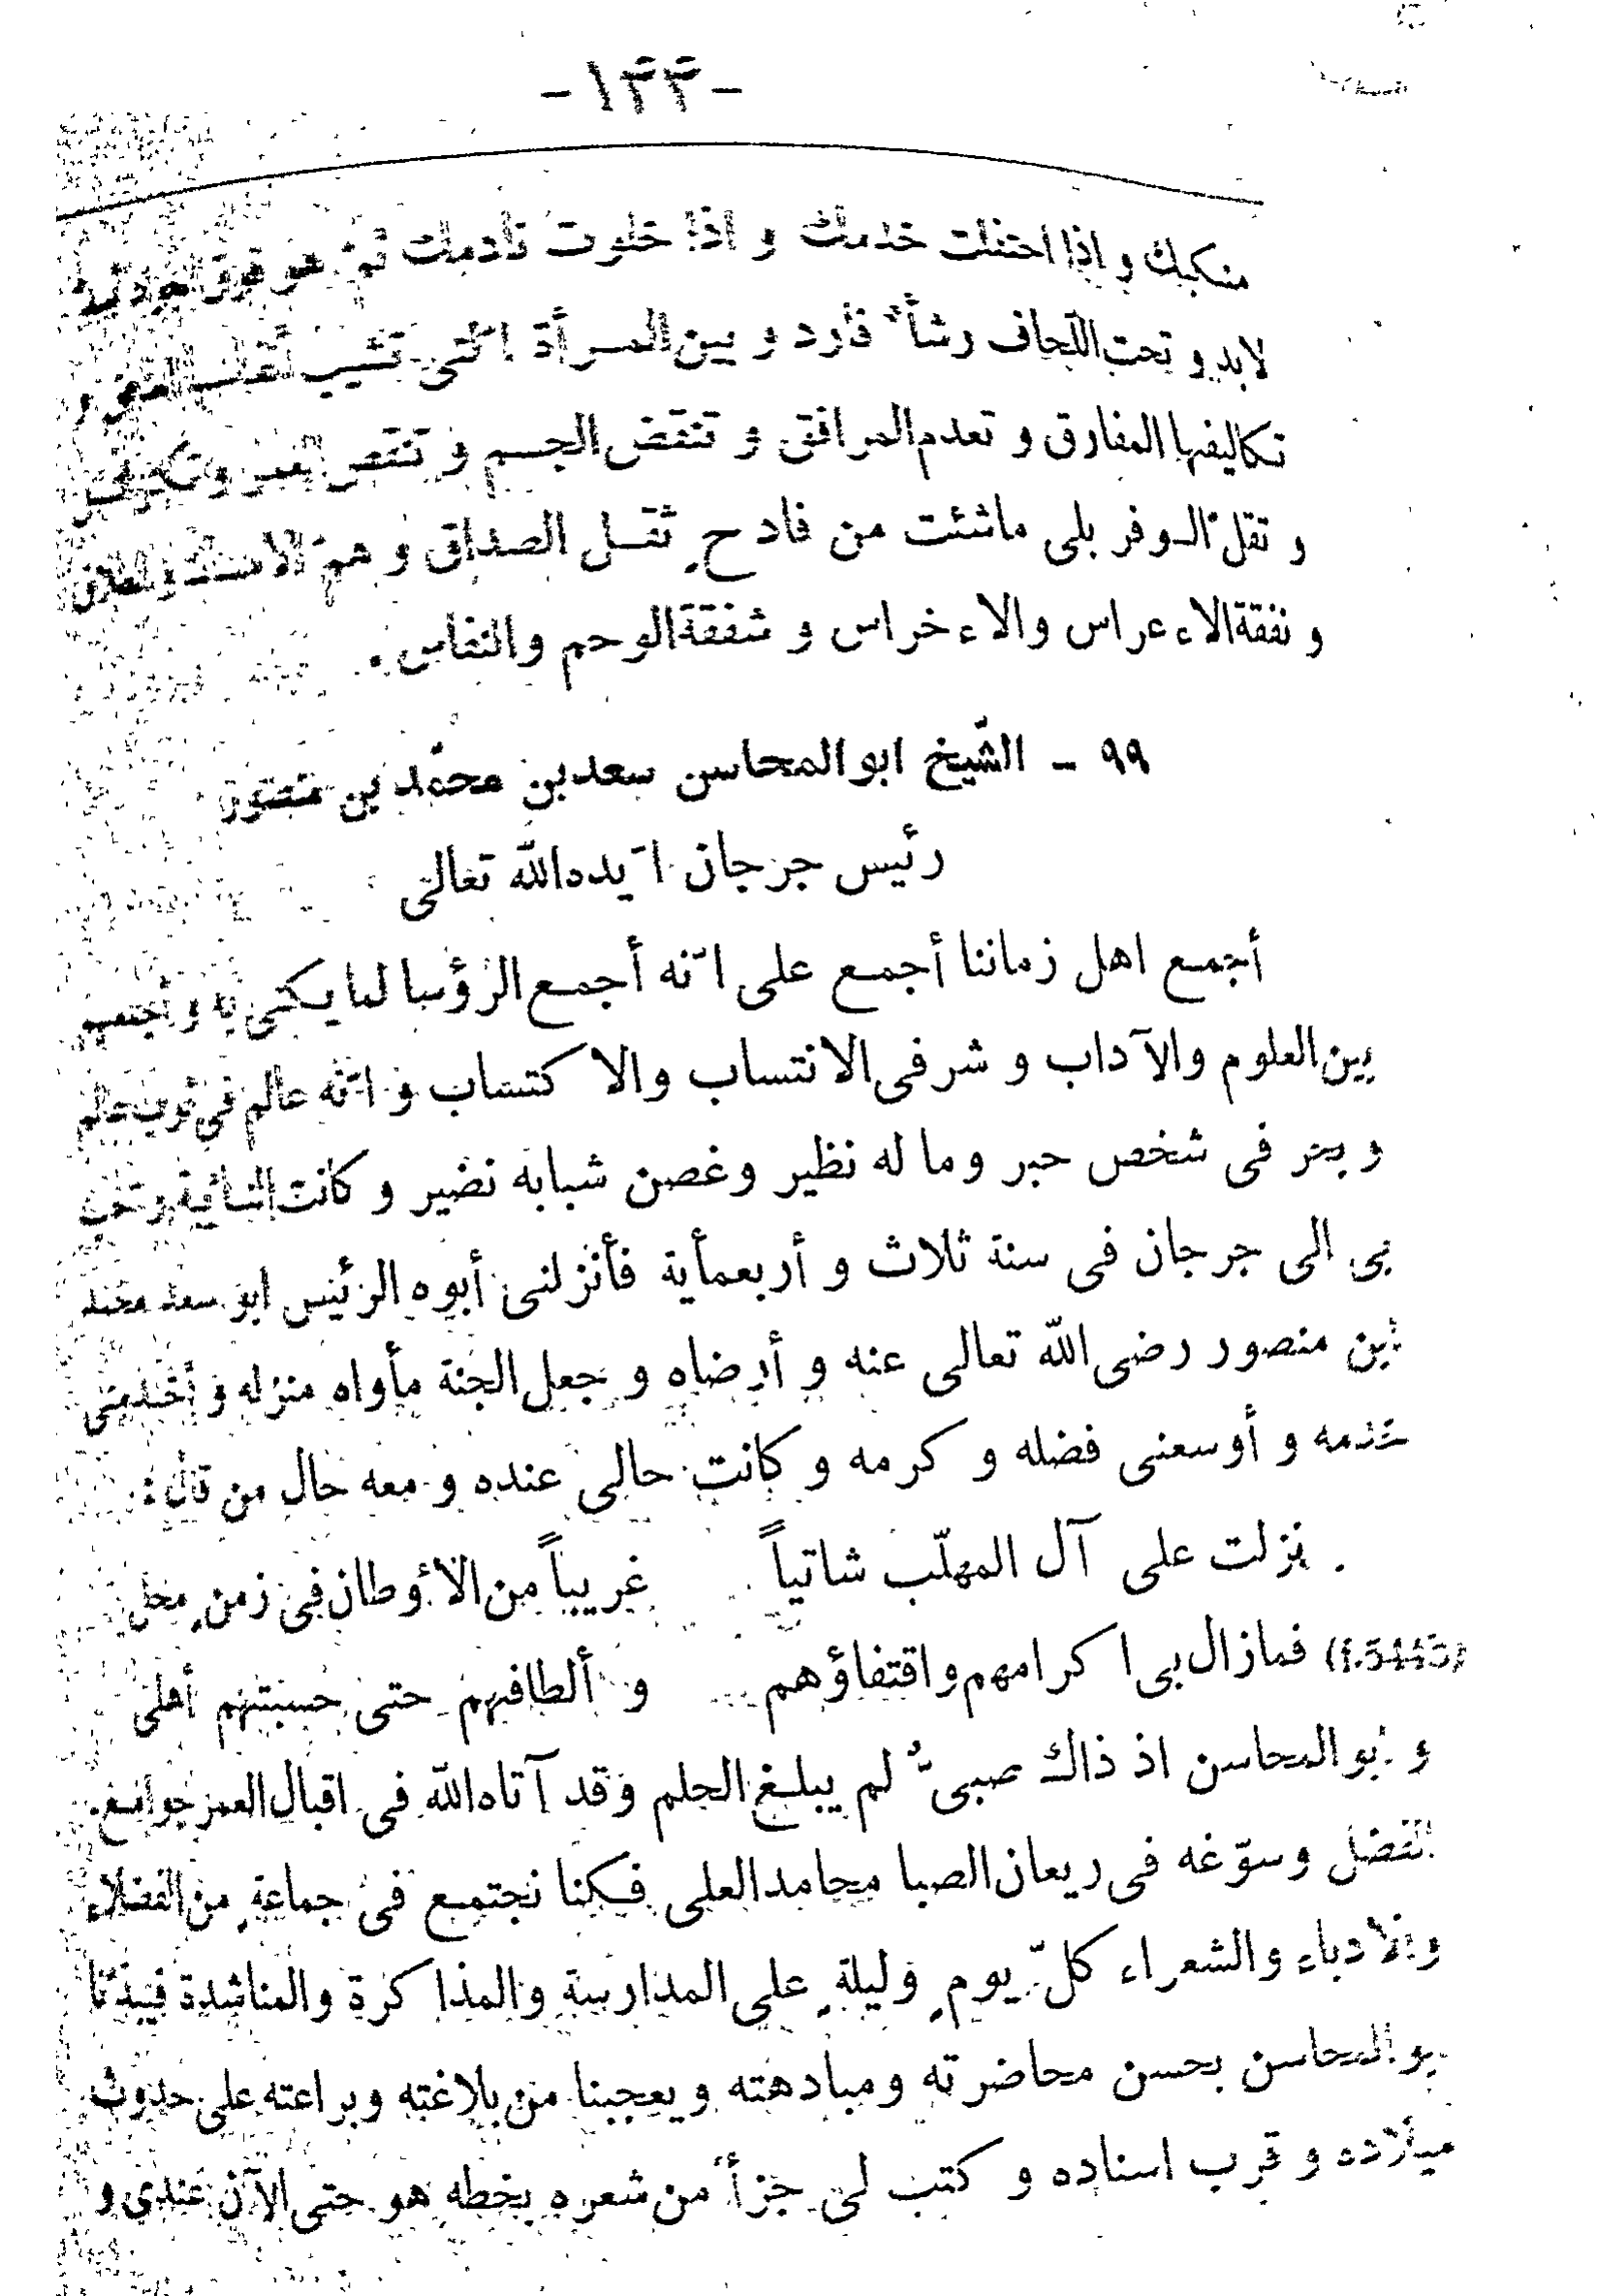 -١٣٣-
منكبك و اذا احتفلت خدمك و اذا خلوت نادمك ثمّ هو فوق
لابد و تحت اللّحاف رشأ فارد و بين المرأة الّتى تشيب
تكاليفها المفارق و تعدم المرافق و تنقض الجسم و تنقص العمر و
و تقلّ الوفر بلى ماشئت من فادحٍ ثقل الصداق و همّ الامساك والطلاق
و نفقة الاءعراس والاءخراس و شفقة الوحم والنفاس .
٩٩ - الشّيخ ابوالمحاسن سعدبن محمّدبن منصور
رئيس جرجان ايّده‌الله تعالى
أجمع اهل زماننا أجمع على انّه أجمع الرؤسا لما يكنى به و أجمعهم
بين العلوم والآداب و شرفى الانتساب والاكتساب و انّه عالم فى ثوب عالم
و بحر فى شخص حبر وما له نظير وغصن شبابه نضير و كانت
بى الى جرجان فى سنة ثلاث و أربعمأية فأنزلنى أبوه الرئيس ابو سعد محمد
بن منصور رضى الله تعالى عنه و أرضاه و جعل الجنة مأواه منزله و أخدمنى
خدمه و أوسعنى فضله و كرمه و كانت حالى عنده و معه حال من قال :
نزلت على آل المهلّب شاتياً غريباً من الاؤطان فى زمنٍ محل
(f.544b) فمازال بى اكرامهم واقتفاؤهم و ألطافهم حتى حسبتهم أهلى
و ابوالمحاسن اذ ذاك صبىٌّ لم يبلغ الحلم وقد آتاه‌الله فى اقبال العمر جوامع
الفضل وسوّغه فى ريعان الصبا محامد العلى فكنا نجتمع فى جماعةٍ من الفضلاء
والادباء والشعراء كلّ يومٍ وليلةٍ على المدارسة والمذاكرة والمناشدة
بوالمحاسن بحسن محاضرته ومبادهته ويعجبنا من بلاغته وبراعته على حدوث
ميلاده و قرب اسناده و كتب لى جزأ من شعره بخطه هو حتى الآن عندى و